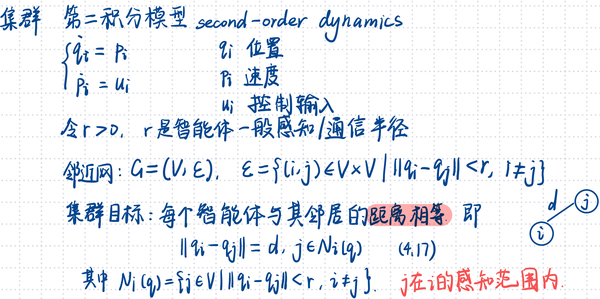 集群 第二积分模型 second-order dynamics
q̇i = pi qi 位置
ṗi = ui pi 速度
ui 控制输入
令r>0, r是智能体一般感知/通信半径
邻近网: G=(V, ε), ε={(i,j)∈V×V | ||qi-qj||<r, i≠j}
集群目标: 每个智能体与其邻居的距离相等 即
||qi-qj||=d, j∈Ni(q) (4.17)
d
j
i
其中 Ni(q)={j∈V | ||qi-qj||<r, i≠j}. j在i的感知范围内.